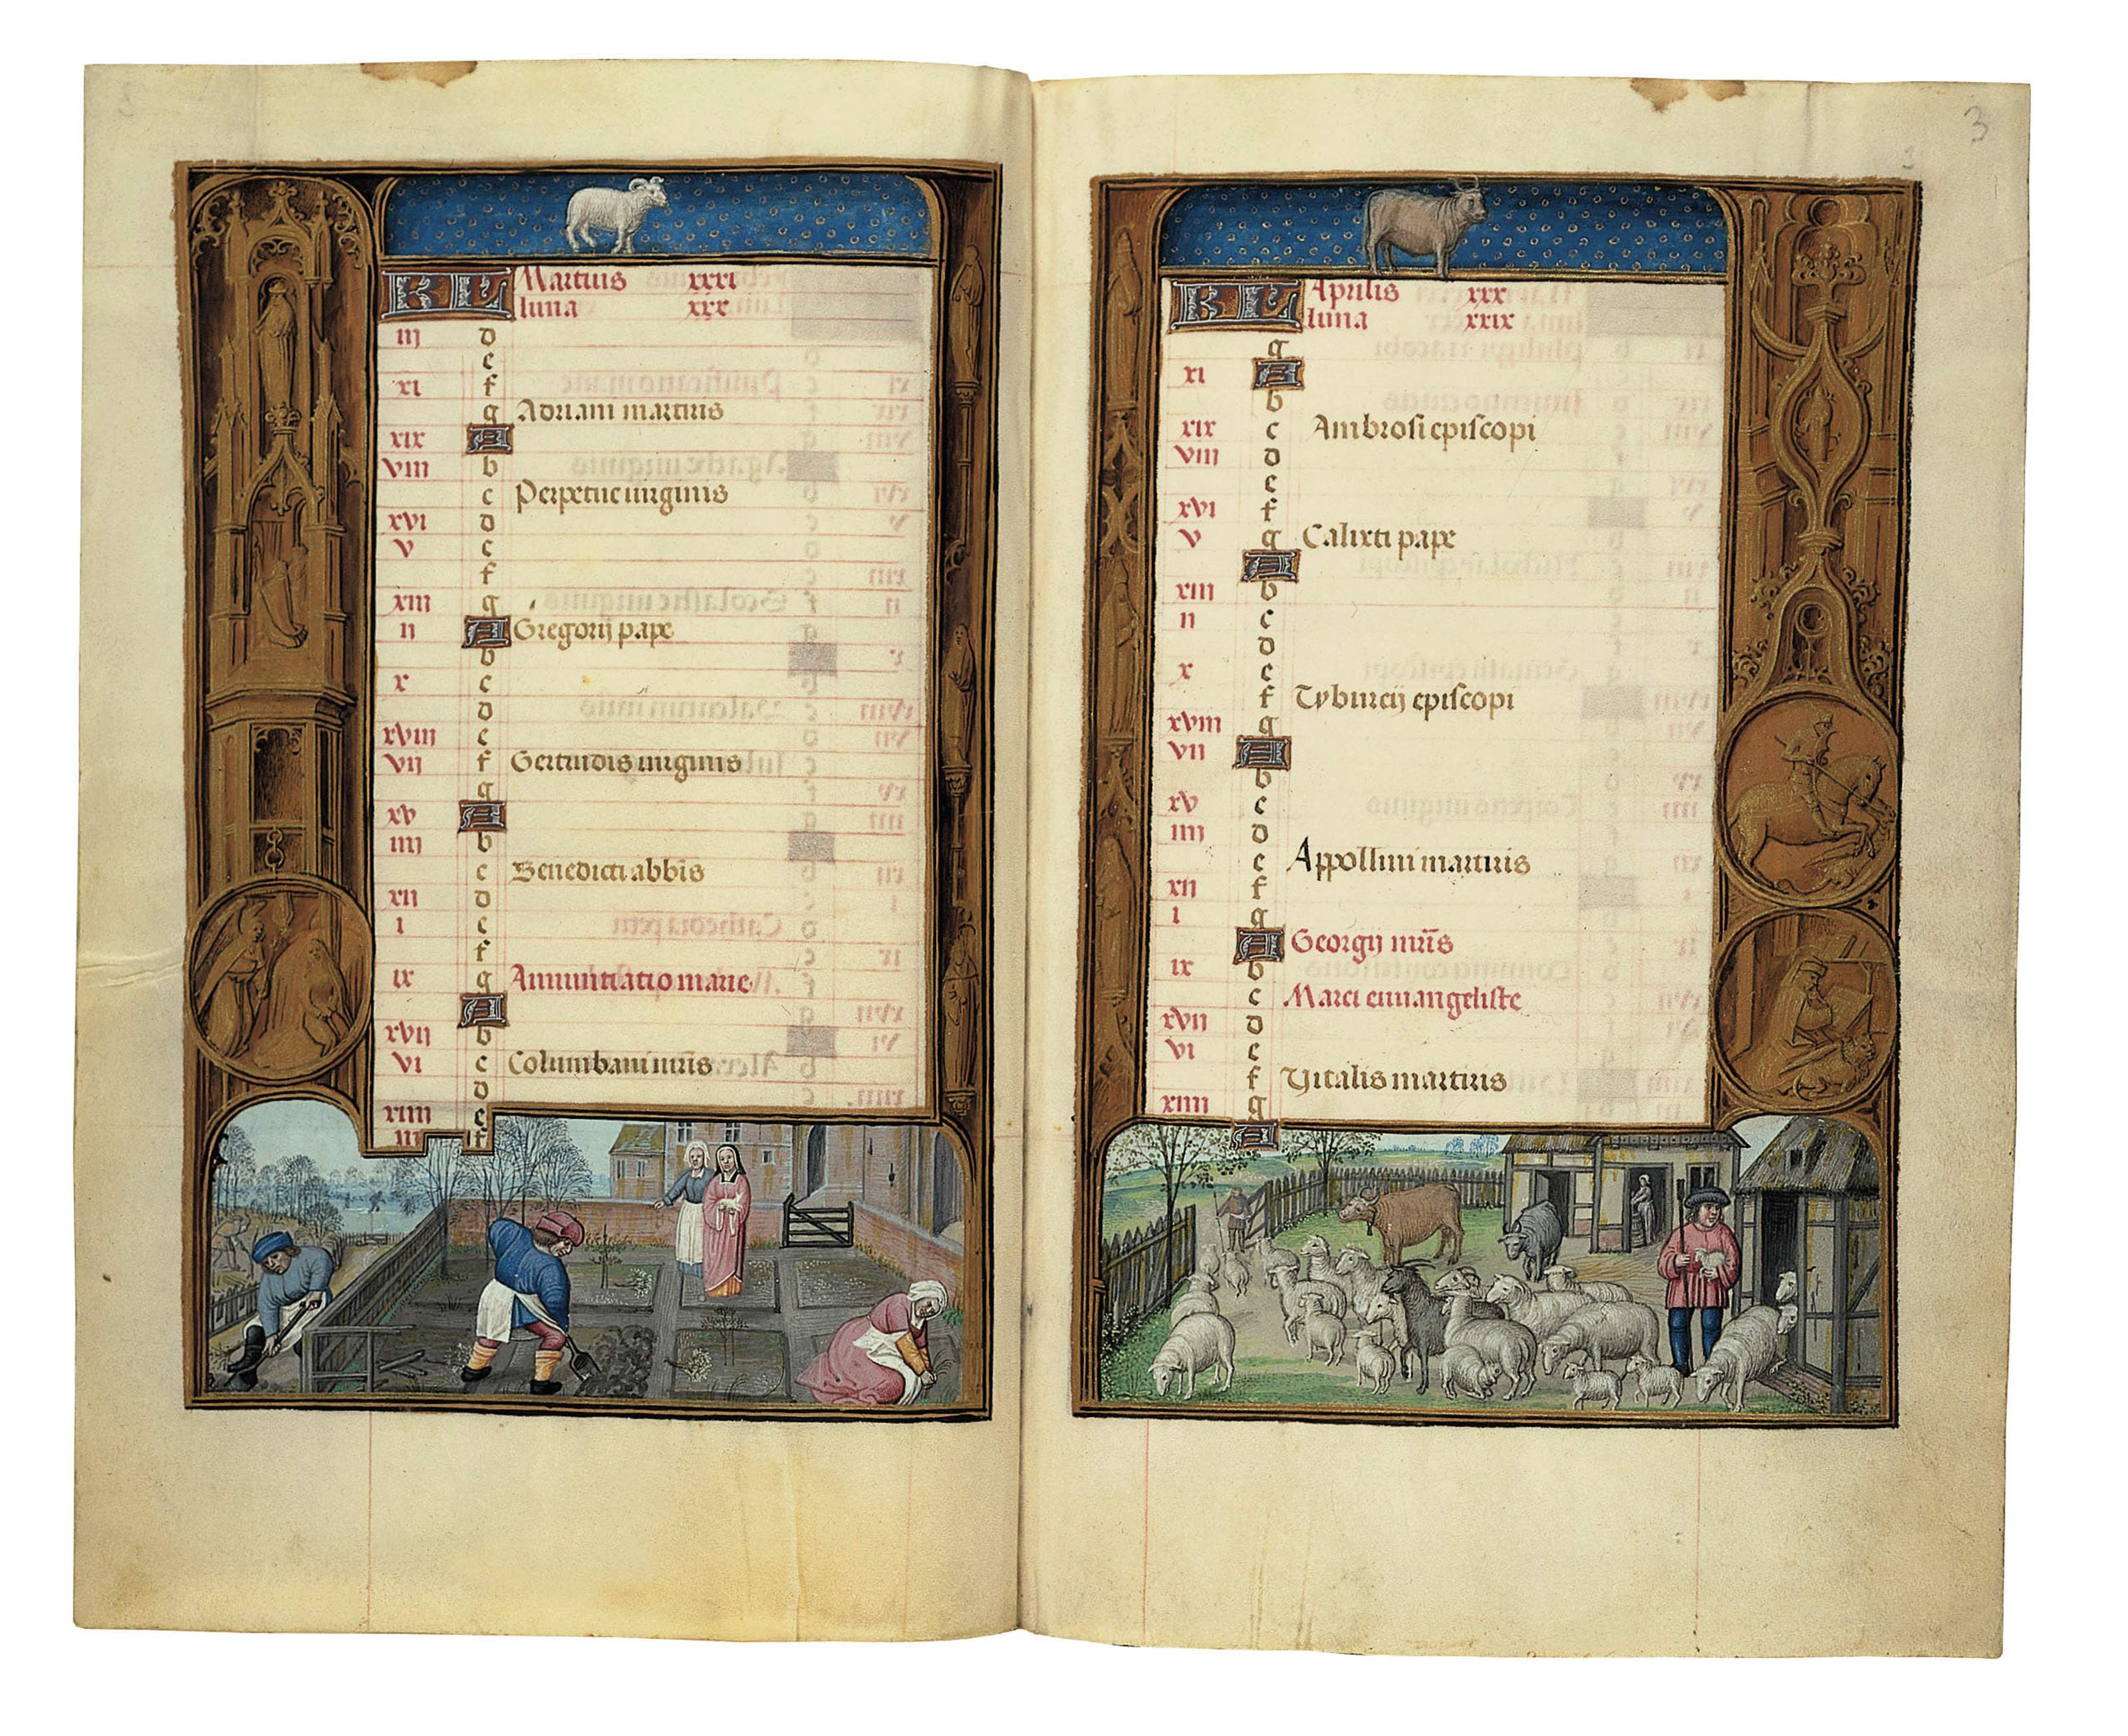 KL Martius xxxi
luna xxx
iij d
e
xi f
g Adriani martiris
xix A
viii b
c Perpetue uirginis
xvi d
v e
f
xiii g
ii A Gregorij pape
b
x c
d
xviii e
vij f Gertrudis uirginis
g
xv A
iiii b
c Benedicti abbis
xii d
i e
f
ix g Annuntiatio marie
A
xvii b
vi c Columbani mr̄is
d
xiiii e
iii f
3
KL Aprilis xxx
luna xxix
g
xi A
b
xix c Ambrosi episcopi
viii d
e
xvi f
v g Calixti pape
A
xiii b
ii c
d
x e
f Tyburcij episcopi
xviii g
vii A
b
xv c
iiii d
e Appollini martiris
xii f
i g
A Georgij mr̄is
ix b
c Marci euuangeliste
xvii d
vi e
f Vitalis martiris
xiiii g
A